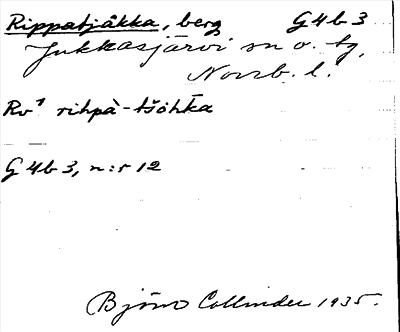 Rippatjåkka, berg G4b3
Jukkasjärvi sn o. tg,
Norrb. l.
Rv¹ rihpà-tšǒhka
G4b3, n:r 12
Björn Collinder 1935.